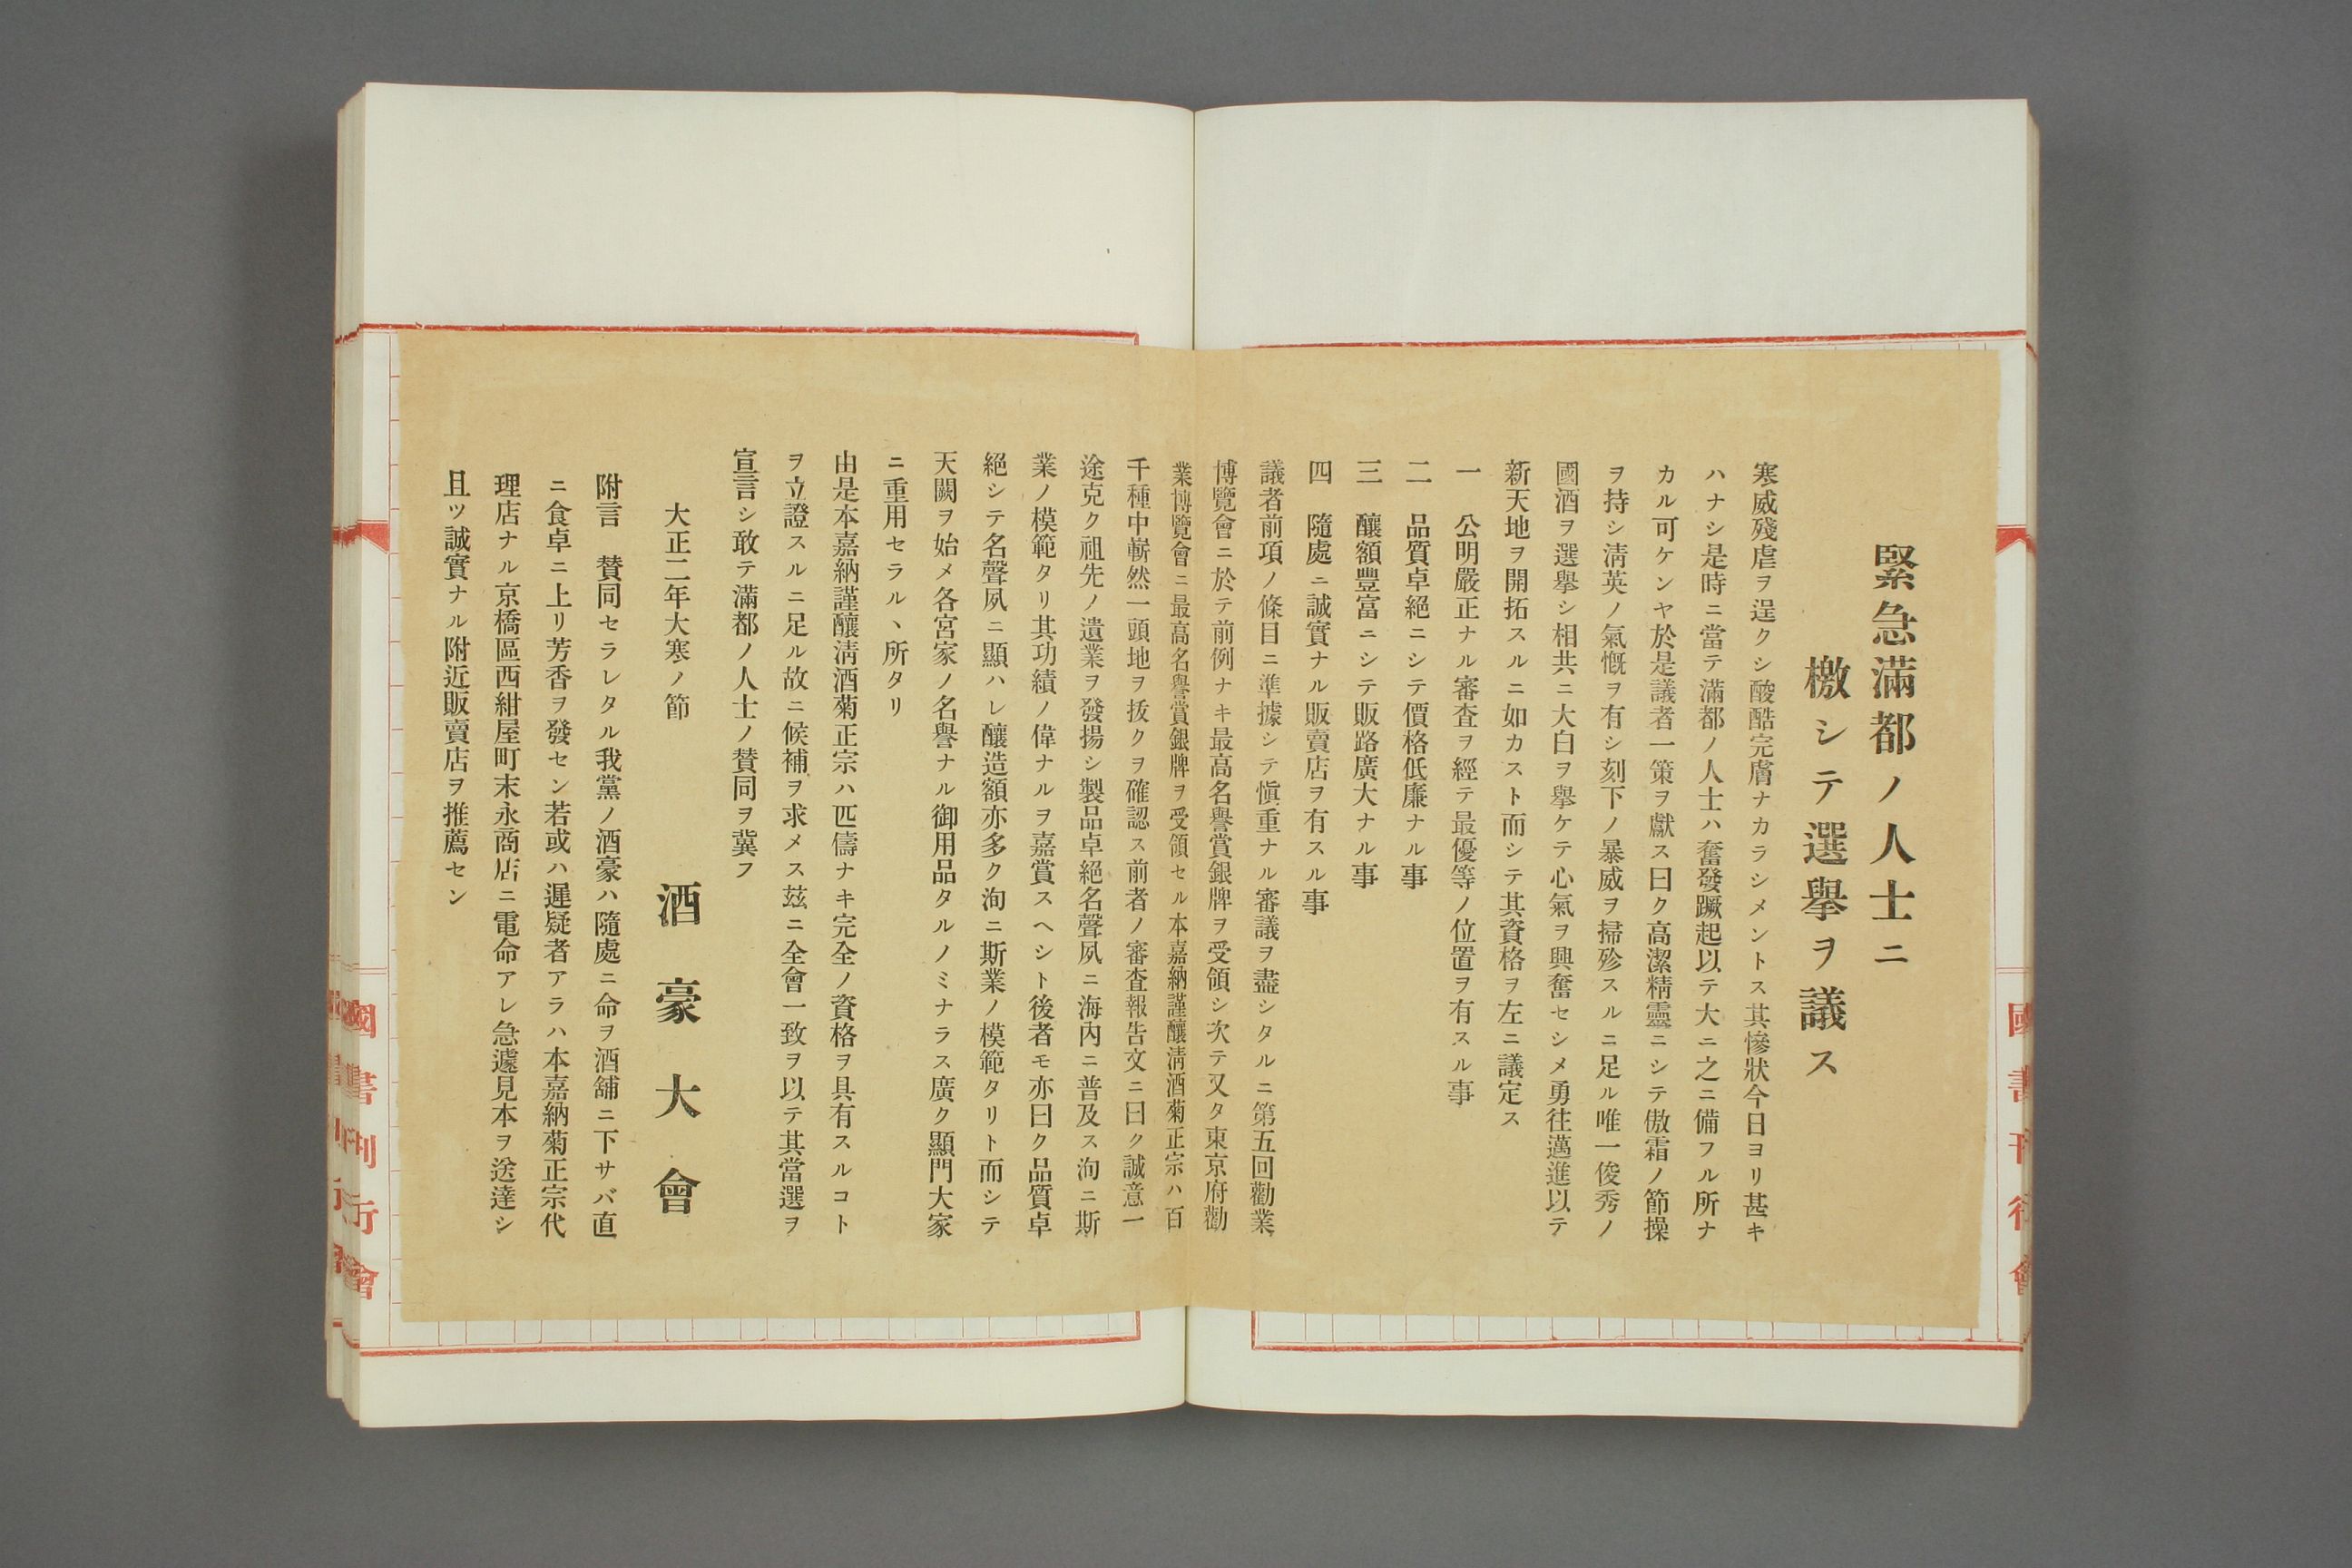 緊急滿都ノ人士ニ
檄シテ選擧ヲ議ス
寒威殘虐ヲ逞クシ酸酷完膚ナカラシメントス其慘狀今日ヨリ甚キ
ハナシ是時ニ當テ滿都ノ人士ハ奮發蹶起以テ大ニ之ニ備フル所ナ
カル可ケンヤ於是議者一策ヲ獻ス曰ク高潔精靈ニシテ傲霜ノ節操
ヲ持シ淸英ノ氣慨ヲ有シ刻下ノ暴威ヲ掃殄スルニ足ル唯一俊秀ノ
國酒ヲ選擧シ相共ニ大白ヲ擧ケテ心氣ヲ興奮セシメ勇往邁進以テ
新天地ヲ開拓スルニ如カスト而シテ其資格ヲ左ニ議定ス
一　公明嚴正ナル審査ヲ經テ最優等ノ位置ヲ有スル事
二　品質卓絕ニシテ價格低廉ナル事
三　釀額豐富ニシテ販路廣大ナル事
四　隨處ニ誠實ナル販賣店ヲ有スル事
議者前項ノ條目ニ準據シテ愼重ナル審議ヲ盡シタルニ第五回勸業
博覽會ニ於テ前例ナキ最高名譽賞銀牌ヲ受領シ次テ又タ東京府勸
業博覽會ニ最高名譽賞銀牌ヲ受領セル本嘉納謹釀淸酒菊正宗ハ百
千種中嶄然一頭地ヲ拔クヲ確認ス前者ノ審査報告文ニ曰ク誠意一
途克ク祖先ノ遺業ヲ發揚シ製品卓絕名聲夙ニ海內ニ普及ス洵ニ斯
業ノ模範タリ其功績ノ偉ナルヲ嘉賞スヘシト後者モ亦曰ク品質卓
絕シテ名聲夙ニ顯ハレ釀造額亦多ク洵ニ斯業ノ模範タリト而シテ
天闕ヲ始メ各宮家ノ名譽ナル御用品タルノミナラス廣ク顯門大家
ニ重用セラルヽ所タリ
由是本嘉納謹釀淸酒菊正宗ハ匹儔ナキ完全ノ資格ヲ具有スルコト
ヲ立證スルニ足ル故ニ候補ヲ求メス茲ニ全會一致ヲ以テ其當選ヲ
宣言シ敢テ滿都ノ人士ノ賛同ヲ冀フ
大正二年大寒ノ節
酒豪大會
附言　賛同セラレタル我黨ノ酒豪ハ隨處ニ命ヲ酒舖ニ下サバ直
ニ食卓ニ上リ芳香ヲ發セン若或ハ遲疑者アラハ本嘉納菊正宗代
理店ナル京橋區西紺屋町末永商店ニ電命アレ急遽見本ヲ送達シ
且ツ誠實ナル附近販賣店ヲ推薦セン
國書刊行會